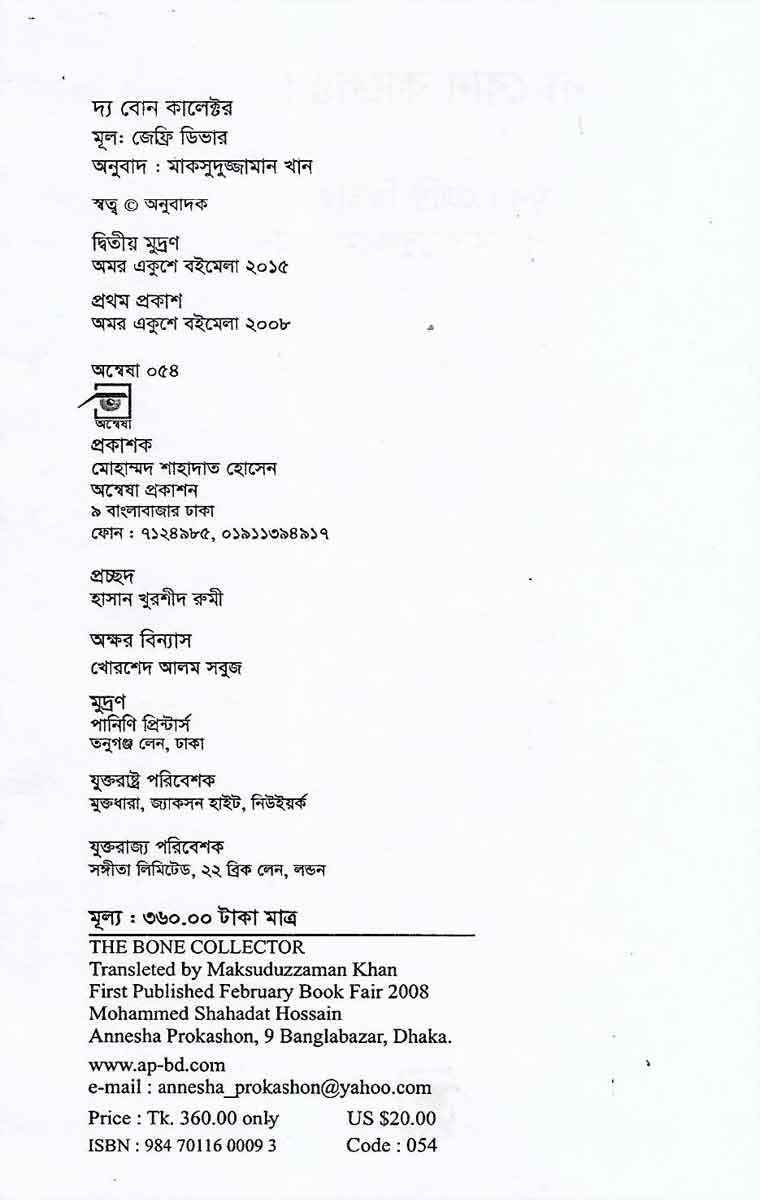 দ্য বোন কালেক্টর
মূল: জেফ্রি ডিভার
অনুবাদ : মাকসুদুজ্জামান খান
স্বত্ব © অনুবাদক
দ্বিতীয় মুদ্রণ
অমর একুশে বইমেলা ২০১৫
প্রথম প্রকাশ
অমর একুশে বইমেলা ২০০৮
অন্বেষা ০৫৪
অন্বেষা
প্রকাশক
মোহাম্মদ শাহাদাত হোসেন
অন্বেষা প্রকাশন
৯ বাংলাবাজার ঢাকা
ফোন : ৭১২৪৯৮৫, ০১৯১১৩৯৪৯১৭
প্রচ্ছদ
হাসান খুরশীদ রুমী
অক্ষর বিন্যাস
খোরশেদ আলম সবুজ
মুদ্রণ
পানিণি প্রিন্টার্স
তনুগঞ্জ লেন, ঢাকা
যুক্তরাষ্ট্র পরিবেশক
মুক্তধারা, জ্যাকসন হাইট, নিউইয়র্ক
যুক্তরাজ্য পরিবেশক
সঙ্গীতা লিমিটেড, ২২ ব্রিক লেন, লন্ডন
মূল্য : ৩৬০.০০ টাকা মাত্র
THE BONE COLLECTOR
Transleted by Maksuduzzaman Khan
First Published February Book Fair 2008
Mohammed Shahadat Hossain
Annesha Prokashon, 9 Banglabazar, Dhaka.
www.ap-bd.com
e-mail : annesha_prokashon@yahoo.com
Price : Tk. 360.00 only US $20.00
ISBN : 984 70116 0009 3 Code : 054